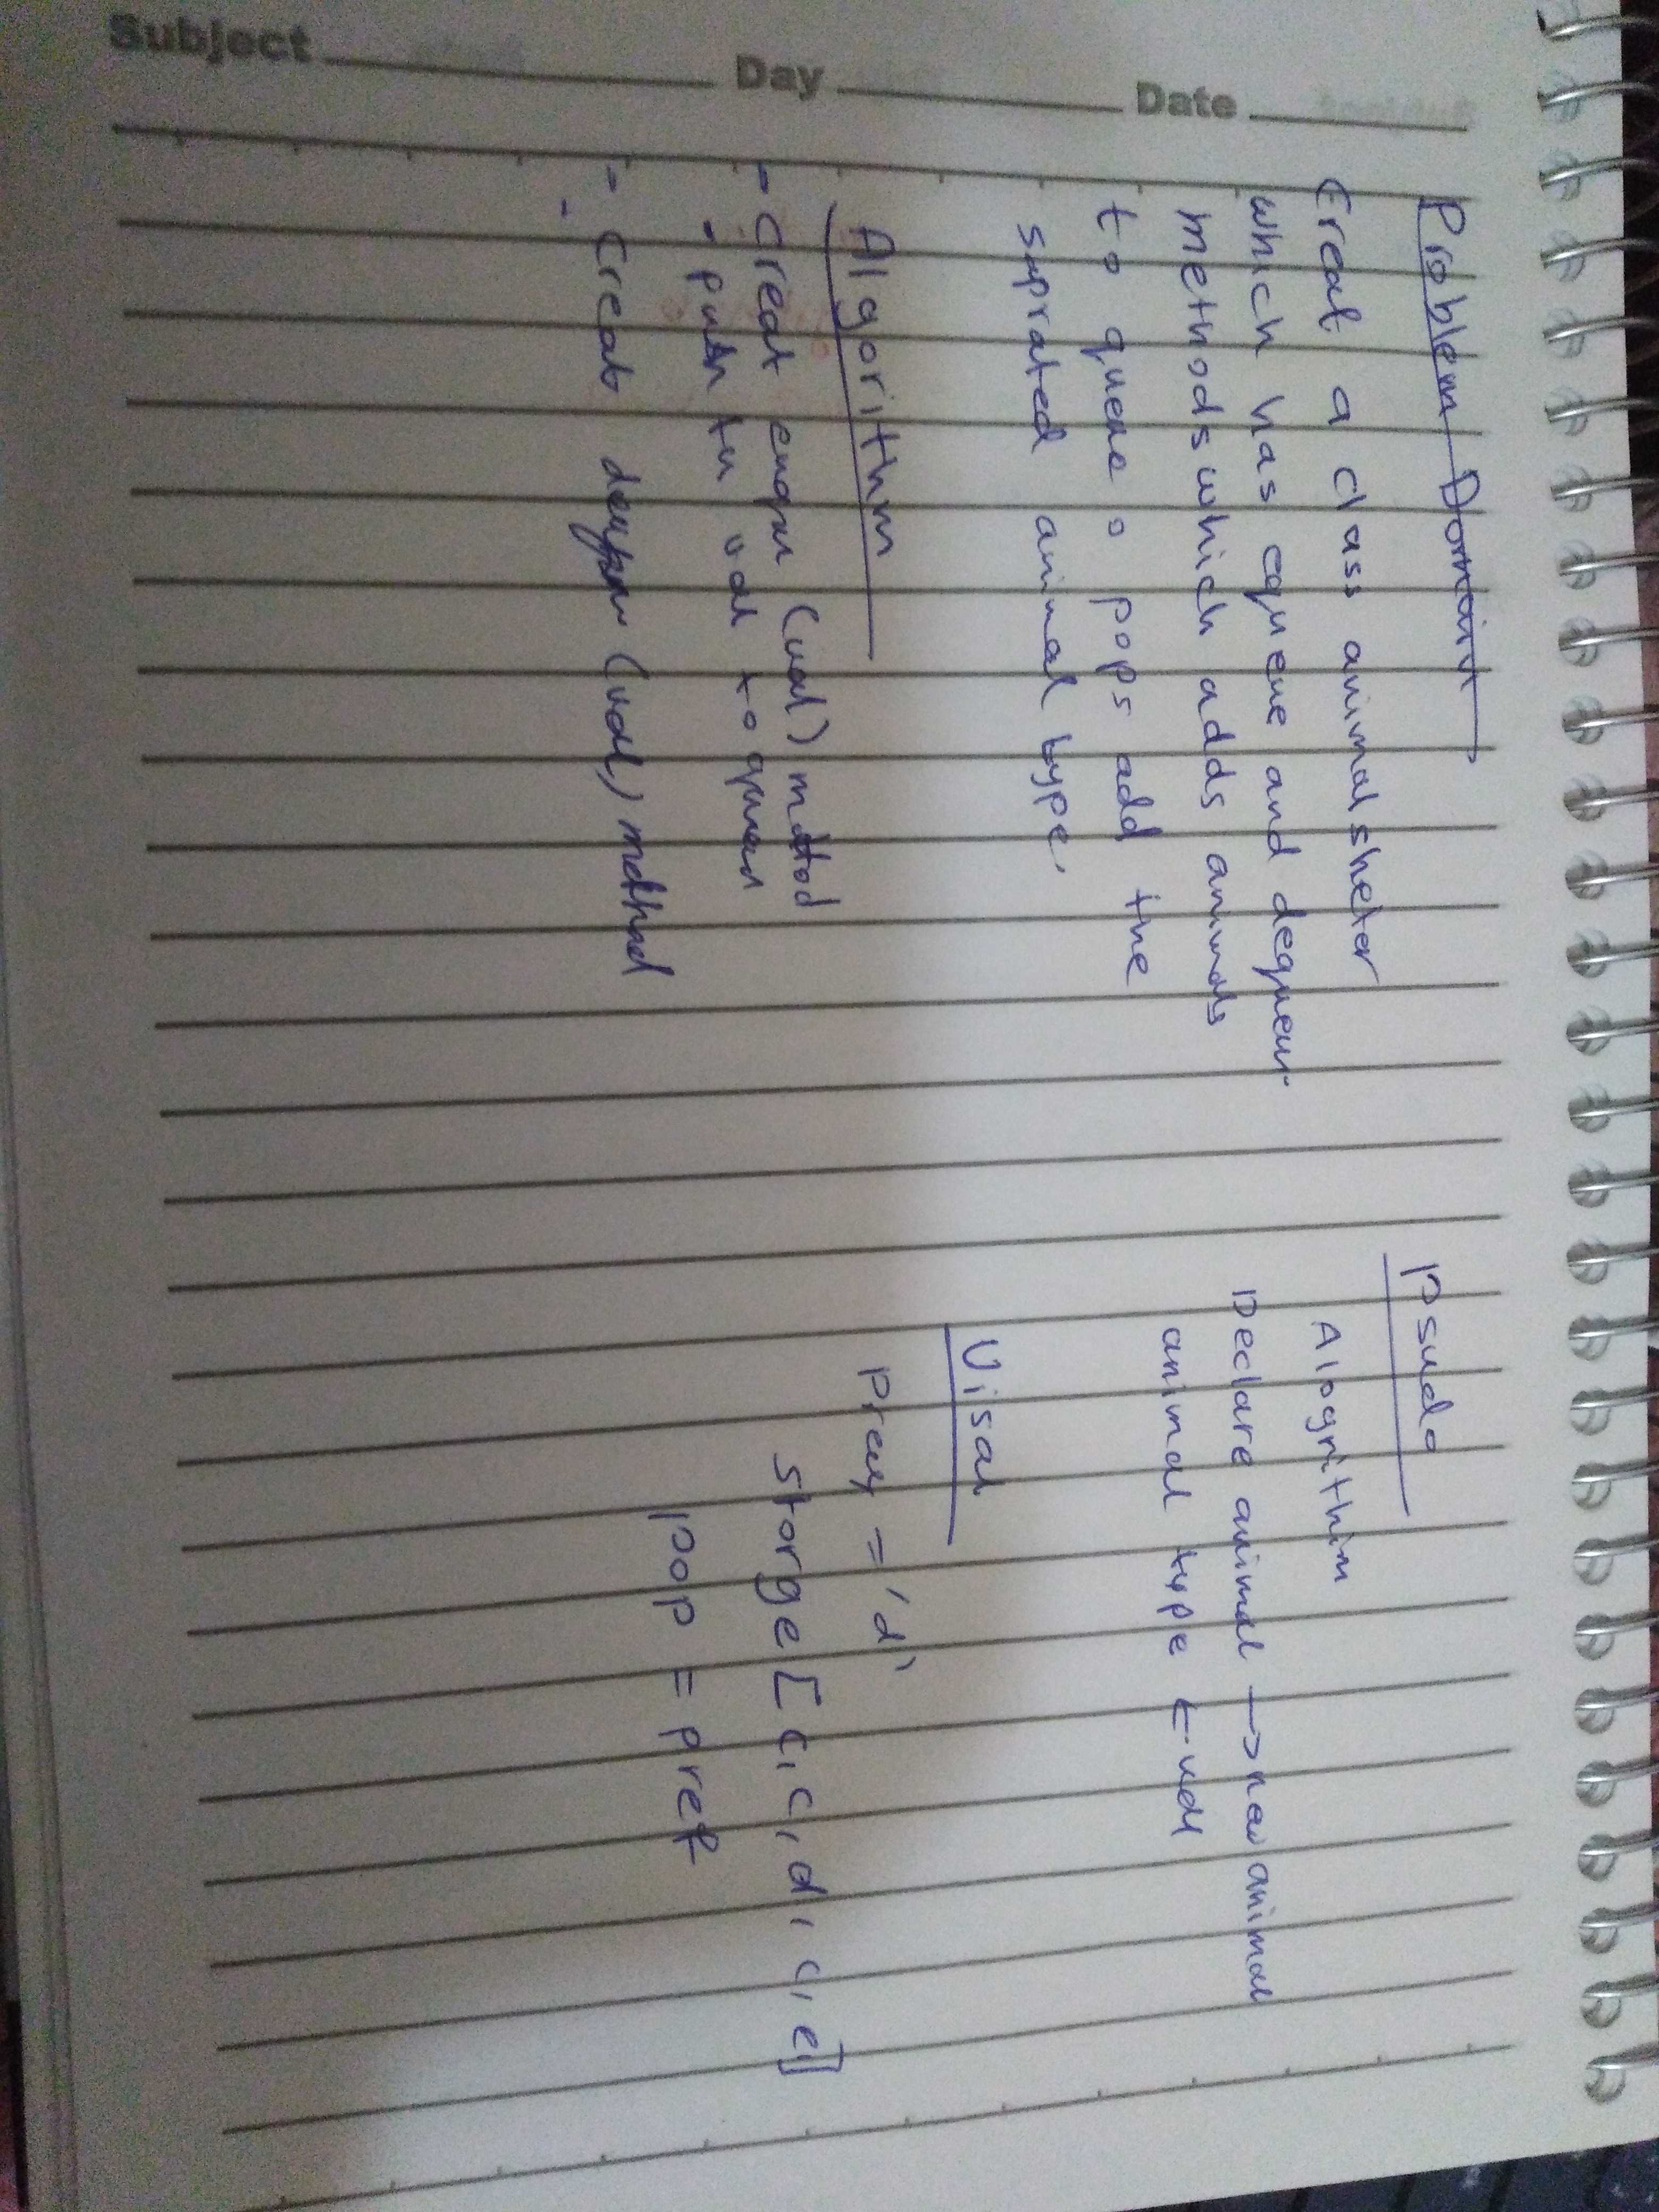 Subject Day Date
Problem Domain
Creat a class animal shelter
which has equeue and dequeue
methods which adds animals
to queue o pops add the
suprated animal type.
Algorithm
- creat enque (val) method
- push the val to queue
- Creat deque (val) method
-
Psudo
Alogrithim
Declare animal → new animal
animal type ← val
Visal
Pref = 'd'
Storge [c, c, d, c, e]
pop = pref